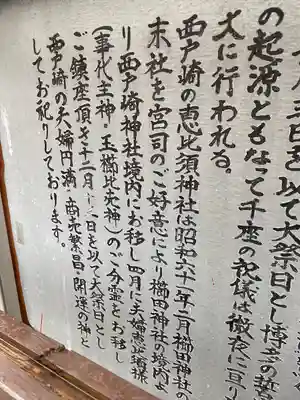 月三日を以て大祭日とし博多の誓
の起源ともなって千座の祝儀は徹夜に亘り
大に行われる。
西戸崎の恵比須神社は昭和六十一年二月櫛田神社の
末社を宮司のご好意により櫛田神社の境内よ
り西戸崎神社境内にお移し四月に夫婦恵比須様
(事代主神・玉櫛比売神)のご分霊をお移し
ご鎮座頂き十二月三日を以て大祭日とし
西戸崎の夫婦円満・商売繁昌・開運の神と
してお祀りしております。